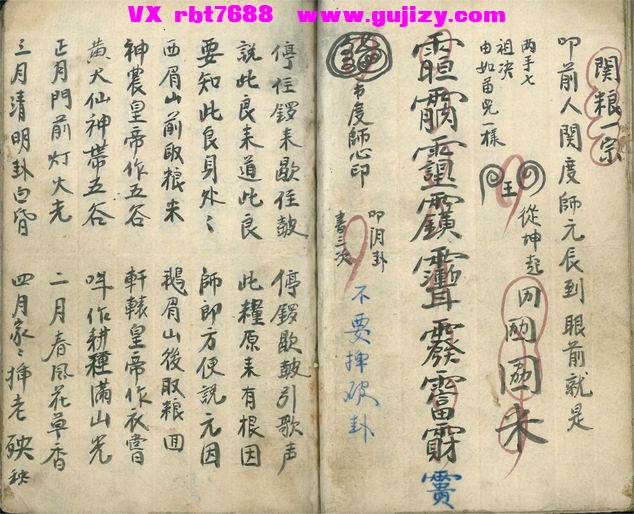 VX rbt7688 www.gujizy.com
関粮一宗
叩前人関度師元辰到眼前就是
両手七
祖决
由如苗児一樣
王
從坤起
不要捭破卦
叩阴卦
書三次
市度師心印
停住鑼来歇住皷 停鑼歇皷引歌声
説此良来道此良 此糧原来有根因
要知此良身外〻 師郎方便説元因
西眉山前取粮来 鵝眉山後取粮囬
神農皇帝作五谷 軒轅皇帝作衣嘗
黄大仙神帯五谷 咩作耕種滿山光
正月門前灯火光 二月春風花草香
三月清明卦白㫮 四月家〻挿老秧